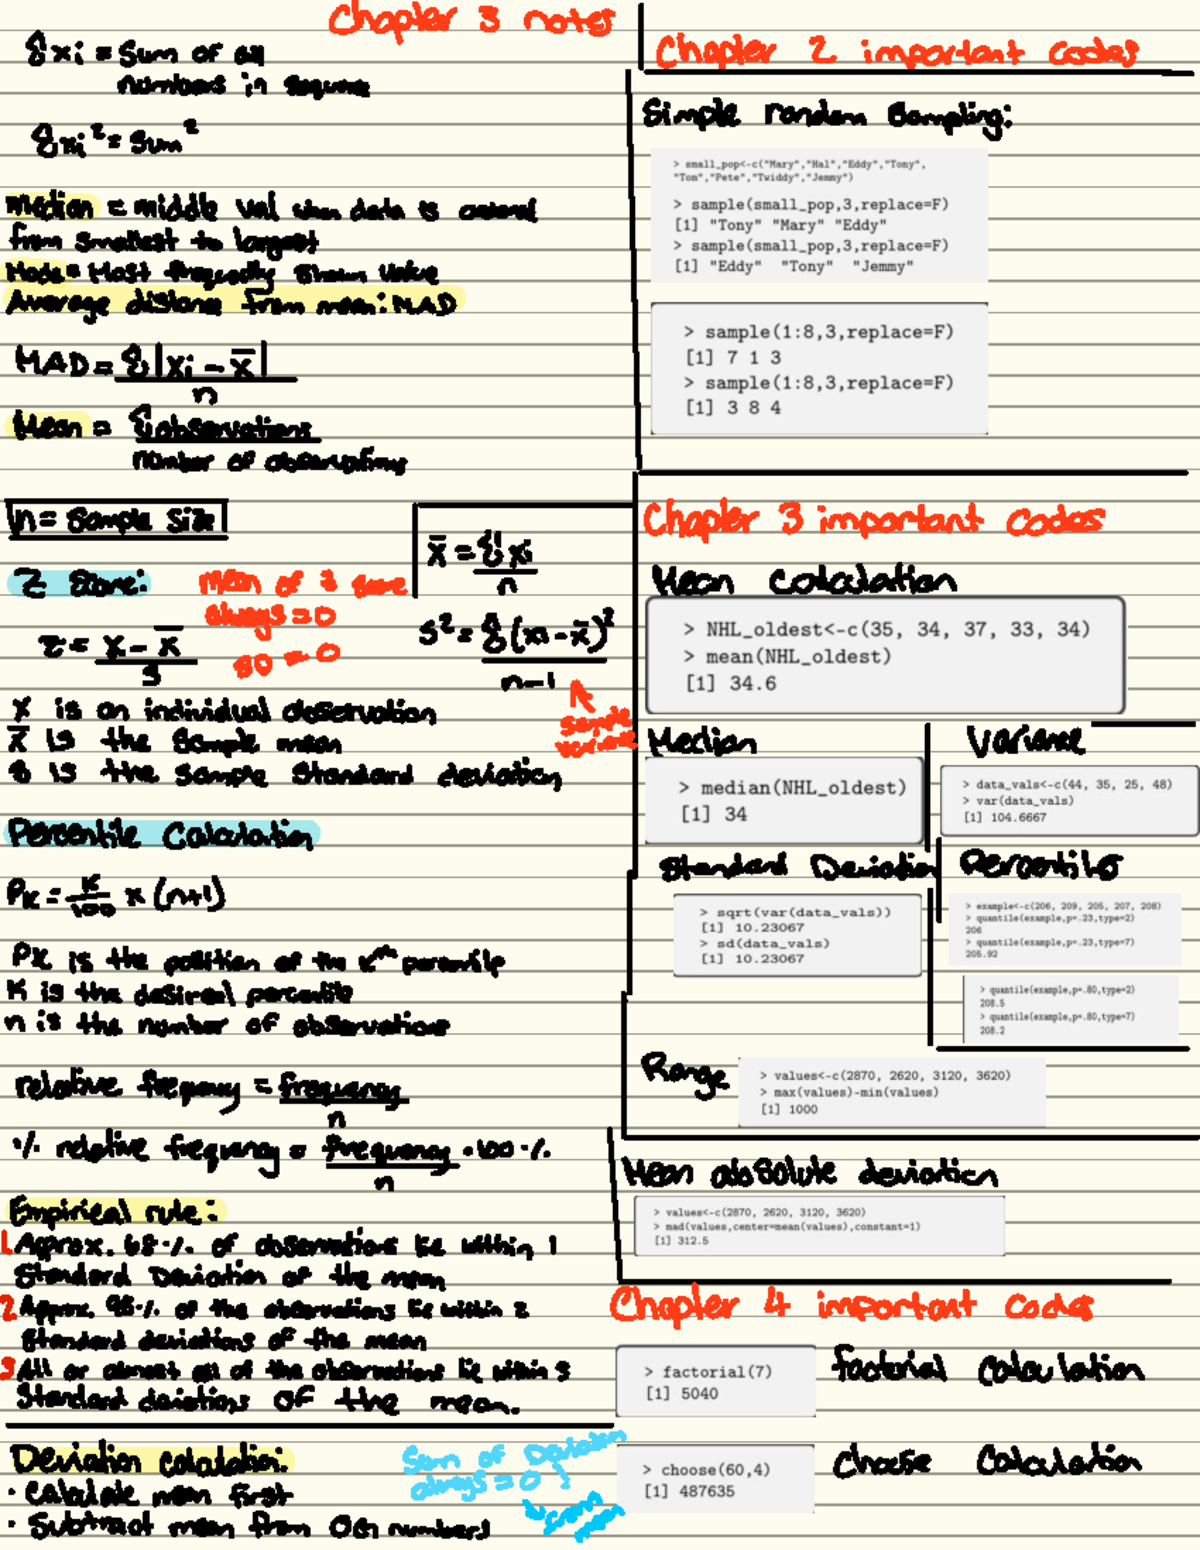 Chapter 3 notes
Σxi = Sum of all
numbers in square
Σxi² = sum²
Median = middle val when data is ordered
from smallest to largest
Mode = Most frequently shown value
Average distance from mean: MAD
MAD = Σ|xi - x̄|
n
Mean = Σobservations
number of observations
n = Sample Size
x̄ = Σxi
n
Z Score:
Mean of z score
always = 0
SD = 0
z = x - x̄
s
s² = Σ(xi - x̄)²
n-1
Sample
variance
X is an individual observation
x̄ is the sample mean
s is the sample standard deviation
Percentile Calculation
PK = K/100 x (n+1)
PK is the position of the Kth percentile
K is the desired percentile
n is the number of observations
relative frequency = frequency
n
% relative frequency = frequency • 100%
n
Empirical rule:
1. Approx. 68% of observations lie within 1
Standard Deviation of the mean
2 Approx. 95% of the observations lie within 2
Standard deviations of the mean
3 All or almost all of the observations lie within 3
Standard deviations of the mean.
Deviation calculation:
• Calculate mean first
• Subtract mean from OG numbers
Sum of Deviation
always = 0
from
mean
Chapter 2 important codes
Simple random Sampling:
> small_pop<-c("Mary","Hal","Eddy","Tony",
"Tom","Pete","Twiddy","Jemmy")
> sample(small_pop,3,replace=F)
[1] "Tony" "Mary" "Eddy"
> sample(small_pop,3,replace=F)
[1] "Eddy" "Tony" "Jemmy"
> sample(1:8,3,replace=F)
[1] 7 1 3
> sample(1:8,3,replace=F)
[1] 3 8 4
Chapter 3 important codes
Mean Calculation
> NHL_oldest<-c(35, 34, 37, 33, 34)
> mean(NHL_oldest)
[1] 34.6
Median
> median(NHL_oldest)
[1] 34
Variance
> data_vals<-c(44, 35, 25, 48)
> var(data_vals)
[1] 104.6667
Standard Deviation
> sqrt(var(data_vals))
[1] 10.23067
> sd(data_vals)
[1] 10.23067
Percentiles
> example<-c(206, 209, 205, 207, 208)
> quantile(example,p=.23,type=2)
206
> quantile(example,p=.23,type=7)
205.92
> quantile(example,p=.80,type=2)
208.5
> quantile(example,p=.80,type=7)
208.2
Range
> values<-c(2870, 2620, 3120, 3620)
> max(values)-min(values)
[1] 1000
Mean absolute deviation
> values<-c(2870, 2620, 3120, 3620)
> mad(values,center=mean(values),constant=1)
[1] 312.5
Chapter 4 important codes
> factorial(7)
[1] 5040
factorial calculation
> choose(60,4)
[1] 487635
Choose Calculation